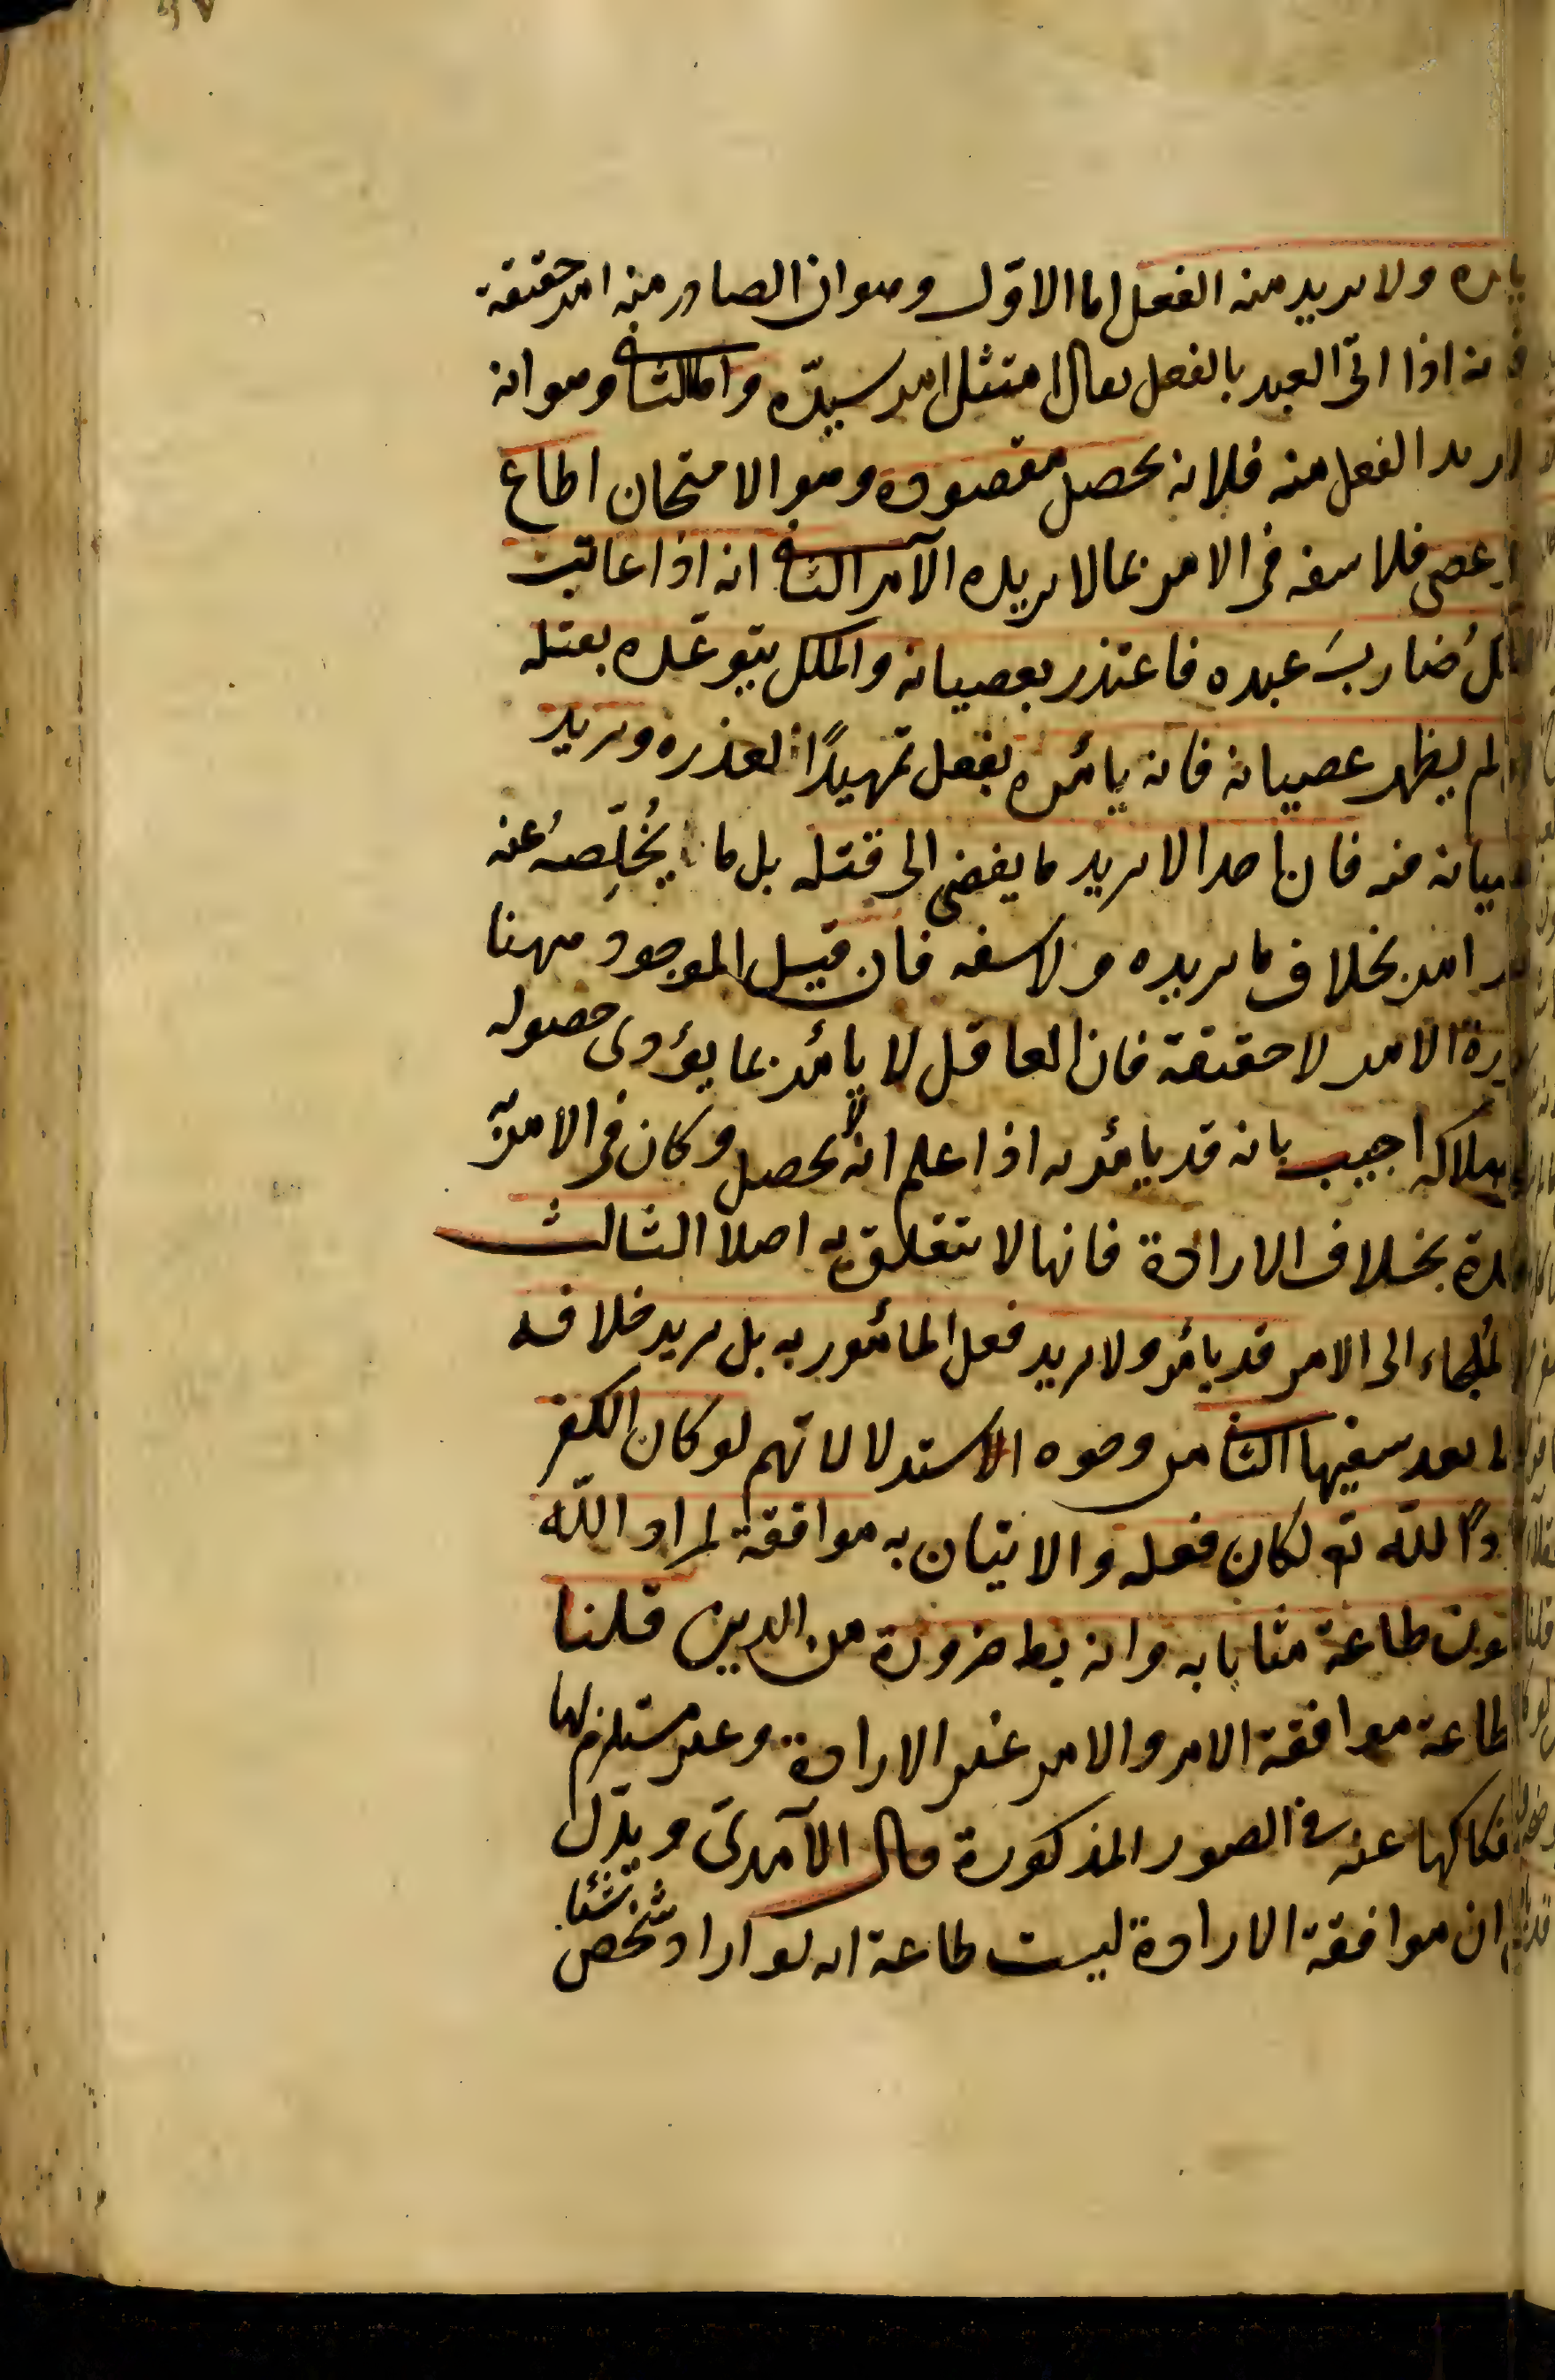 ولا يريد منه الفعل اما الاوّل وهو ان الصادر منه امر حقيقة
اذا اتى العبد بالفعل يقال امتثل امر سيّده واما الثانى وهو انه
الفعل منه فلانه يحصل مقصوده وهو الامتحان اطاع
عصى فلا سفه فى الامر بما لا يريده الآمر الثانى انه اذا عاتب
ضاربَ عبده فاعتذر بعصيانه والملك يتوعّده بقتله
لم يظهر عصيانه فانه يأمره بفعل تمهيدًا لعذره ويريد
منه فان احدا لا يريد ما يفضى الى قتله بل ما يُخلِّصهُ عنه
امر بخلاف ما يريده ولا سفه فان قيل الموجود ههنا
الامر لا حقيقة فان العاقل لا يأمر بما يؤدى حصوله
هلاكه اجيب بانه قد يأمر به اذا علم انه لا يحصل وكان فى الامر به
بخلاف الارادة فانها لا تتعلق به اصلا الثالث
الملجاء الى الامر قد يأمر ولا يريد فعل المأمور به بل يريد خلافه
يعد سفيها الثانى من وجوه الاستدلالاتهم لو كان الكفر
لله تع لكان فعله والاتيان به موافقة لمراد الله
طاعة مثابا به وانه بط ضرورة من الدين قلنا
طاعة موافقة الامر والامر غير الارادة وغير مستلزم لها
عنه فى الصور المذكورة قال الآمدىّ ويدّل
ان موافقة الارادة ليست طاعة انه لو اراد شخص شئا